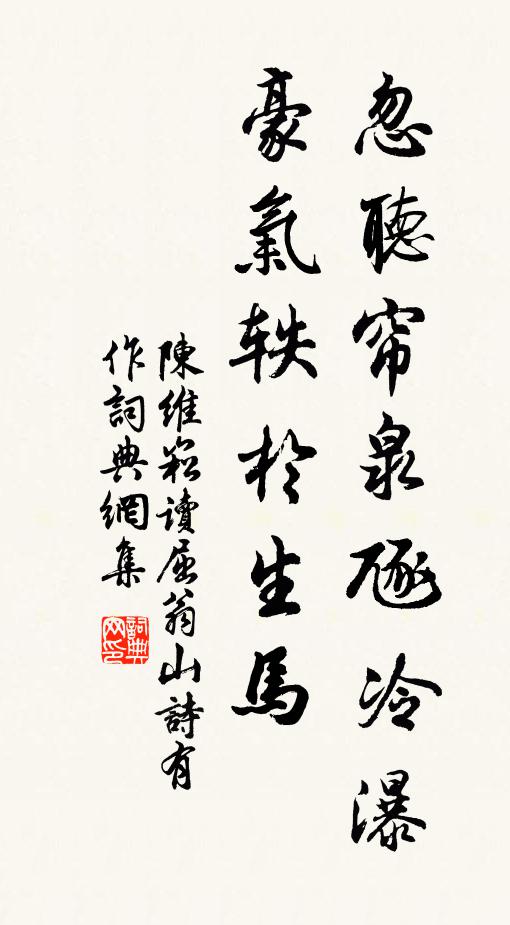 忽聽帘泉豗冷瀑
豪氣軼於生馬
陳維崧讀屈翁山詩有
作詞典網集
詞典网印